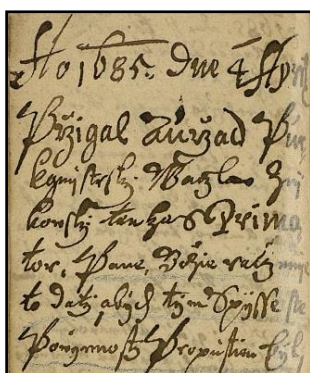 Ao 1685. dne 4 Apr
Przigal Aurzad Pur
kgmistrsky Waczlaw
konsky ten czas Prima
tor, Pane, Bozie racz
to daty, abych tym Spisse
Powinnosty Propusstien byl,